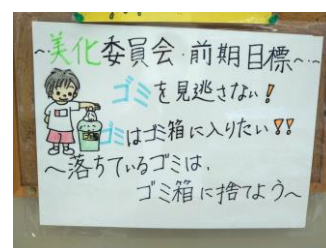 ～美化委員会・前期目標～
ゴミを見逃さない！
ゴミはゴミ箱に入りたい！！
～落ちているゴミは、
ゴミ箱に捨てよう～